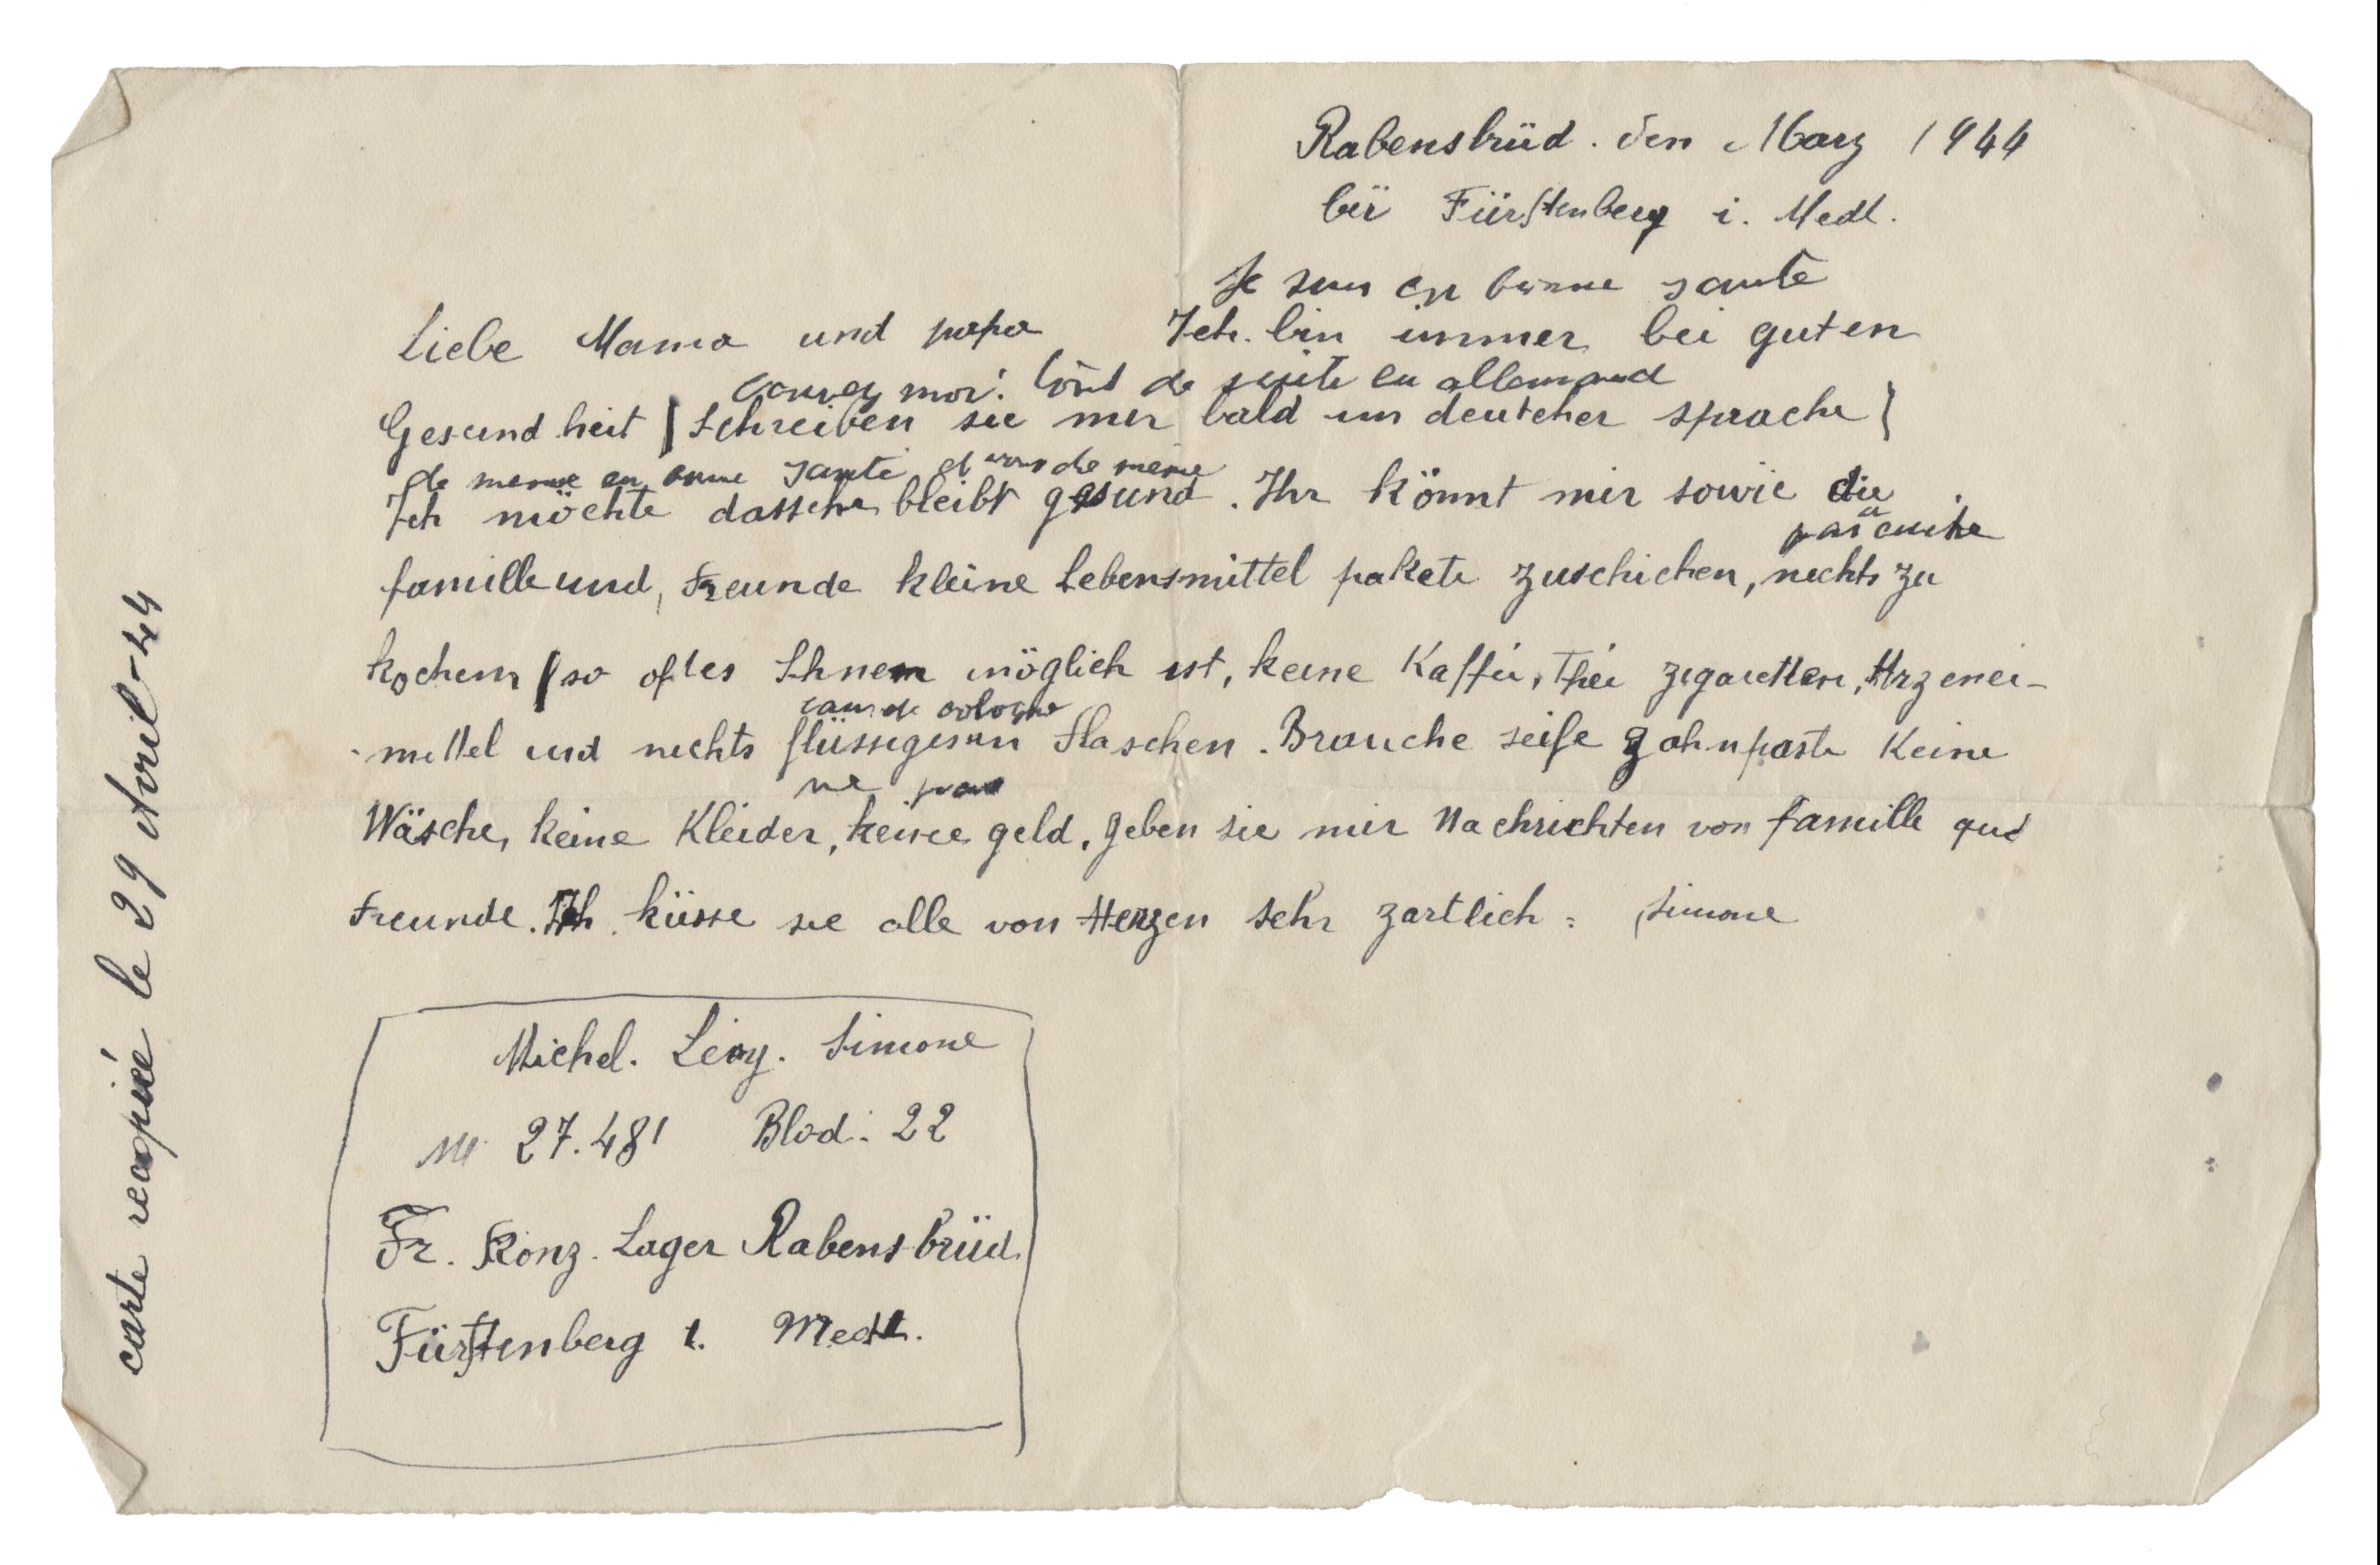 Rabensbrüd. den Marz 1944
bëi Fürstenberg i. Medl.
Je suis en bonne sante
Liebe Mama und papa Ich. bin immer bei guten
moi. tout de suite en allemand
Gesundheit ( Schreiben sie mir bald un deutcher sprache )
de meme en bonne sante et vous de meme
Ich möchte dass bleibt gesund. Ihr könnt mir sowie die
pas a cuire
famille und, Freunde kleine Lebensmittel pakete zuschichen, nichts zu
kochen ( so oftes Ihnen möglich ist, keine Kaffee, Thee zigaretten, Arzenei-
eau de cologne
-mittel und nichts flüssiges in Flaschen. Brauche seife zahnpaste Keine
ne pas
Wäsche, keine Kleider, keine geld, geben sie mir Nachrichten von famille und
Freunde. Ich küsse sie alle von Herzen sehr zartlich : Simone
Michel. Levy. Simone
27.481 Blod. 22
Fr. Konz. Lager Rabensbrüd.
Fürstenberg i. Medl.
carte recopiée le 29 Avril-44